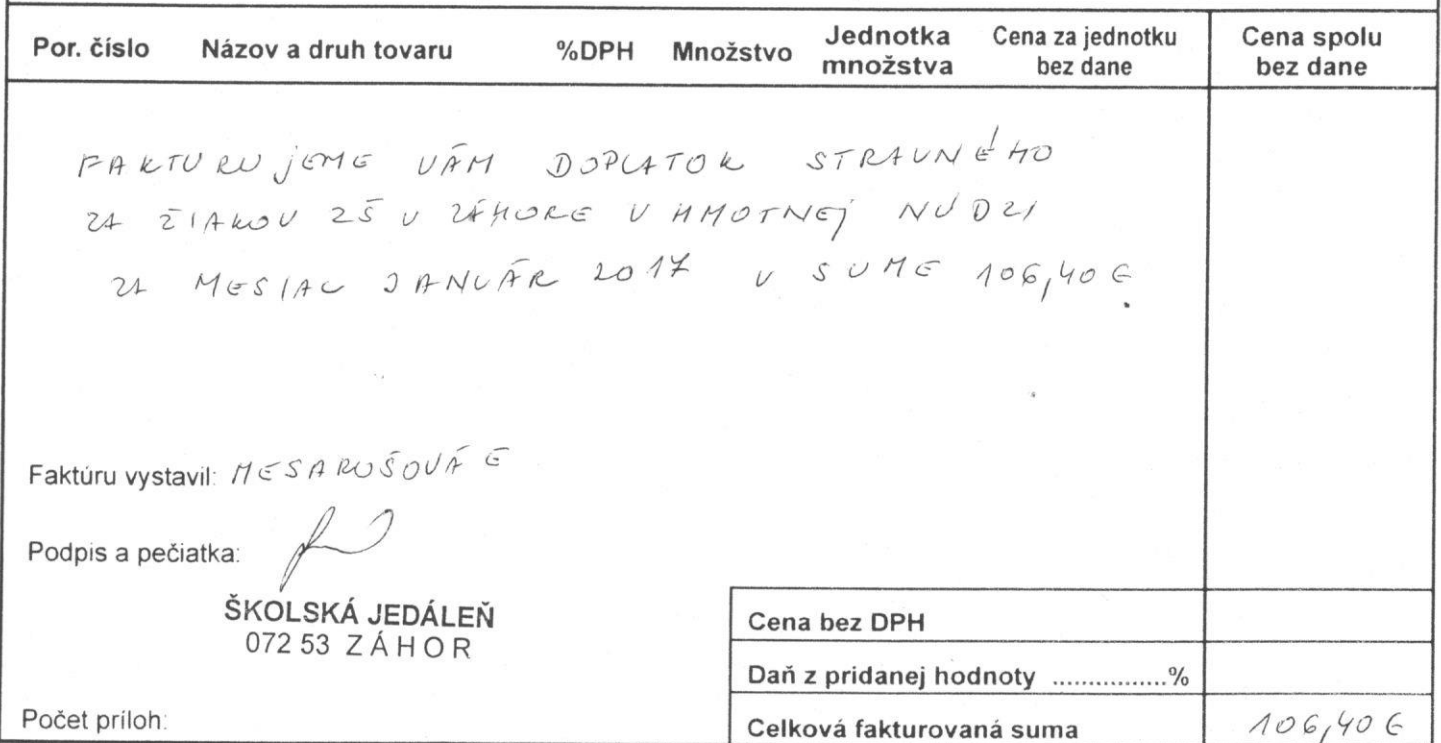 Por. číslo Názov a druh tovaru %DPH Množstvo Jednotka množstva Cena za jednotku bez dane Cena spolu bez dane
FAKTURUJEME VÁM DOPLATOK STRAVNÉHO
ZA ŽIAKOV ZŠ V ZÁHORE V HMOTNEJ NÚDZI
ZA MESIAC JANUÁR 2017 V SUME 106,40 €.
Faktúru vystavil: MESAROŠOVÁ E
Podpis a pečiatka:
ŠKOLSKÁ JEDÁLEŇ
072 53 ZÁHOR
Cena bez DPH
Daň z pridanej hodnoty ................%
Počet príloh:
Celková fakturovaná suma 106,40 €